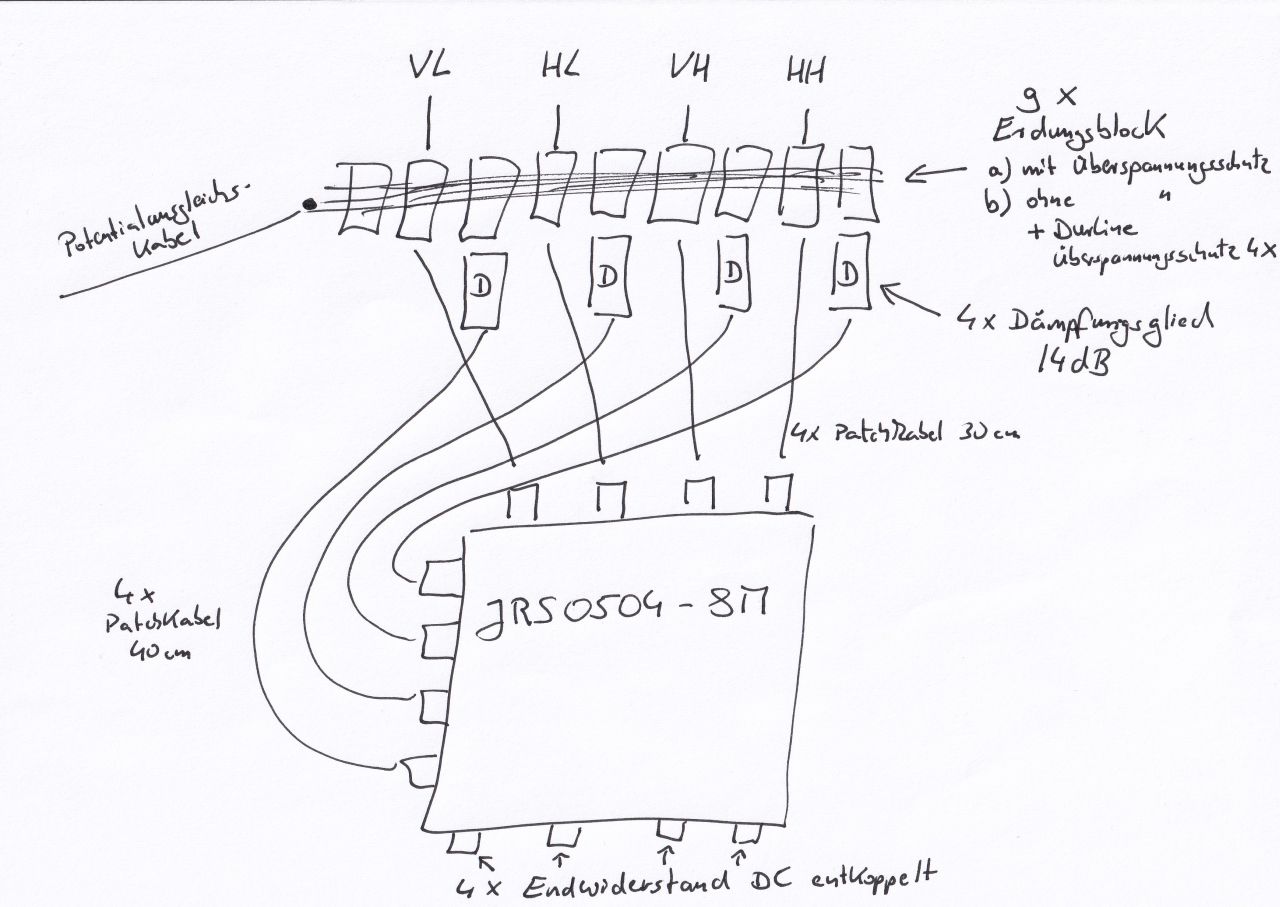 VL HL VH HH
9 x
Erdungsblock
a) mit Überspannungsschutz
b) ohne "
+ Durline
Überspannungsschutz 4x
Potentialausgleichs-
Kabel
D D D D
4x Dämpfungsglied
14dB
4x Patchkabel 30cm
4x
Patchkabel
40cm
JRS0504-8M
4x Endwiderstand DC entkoppelt